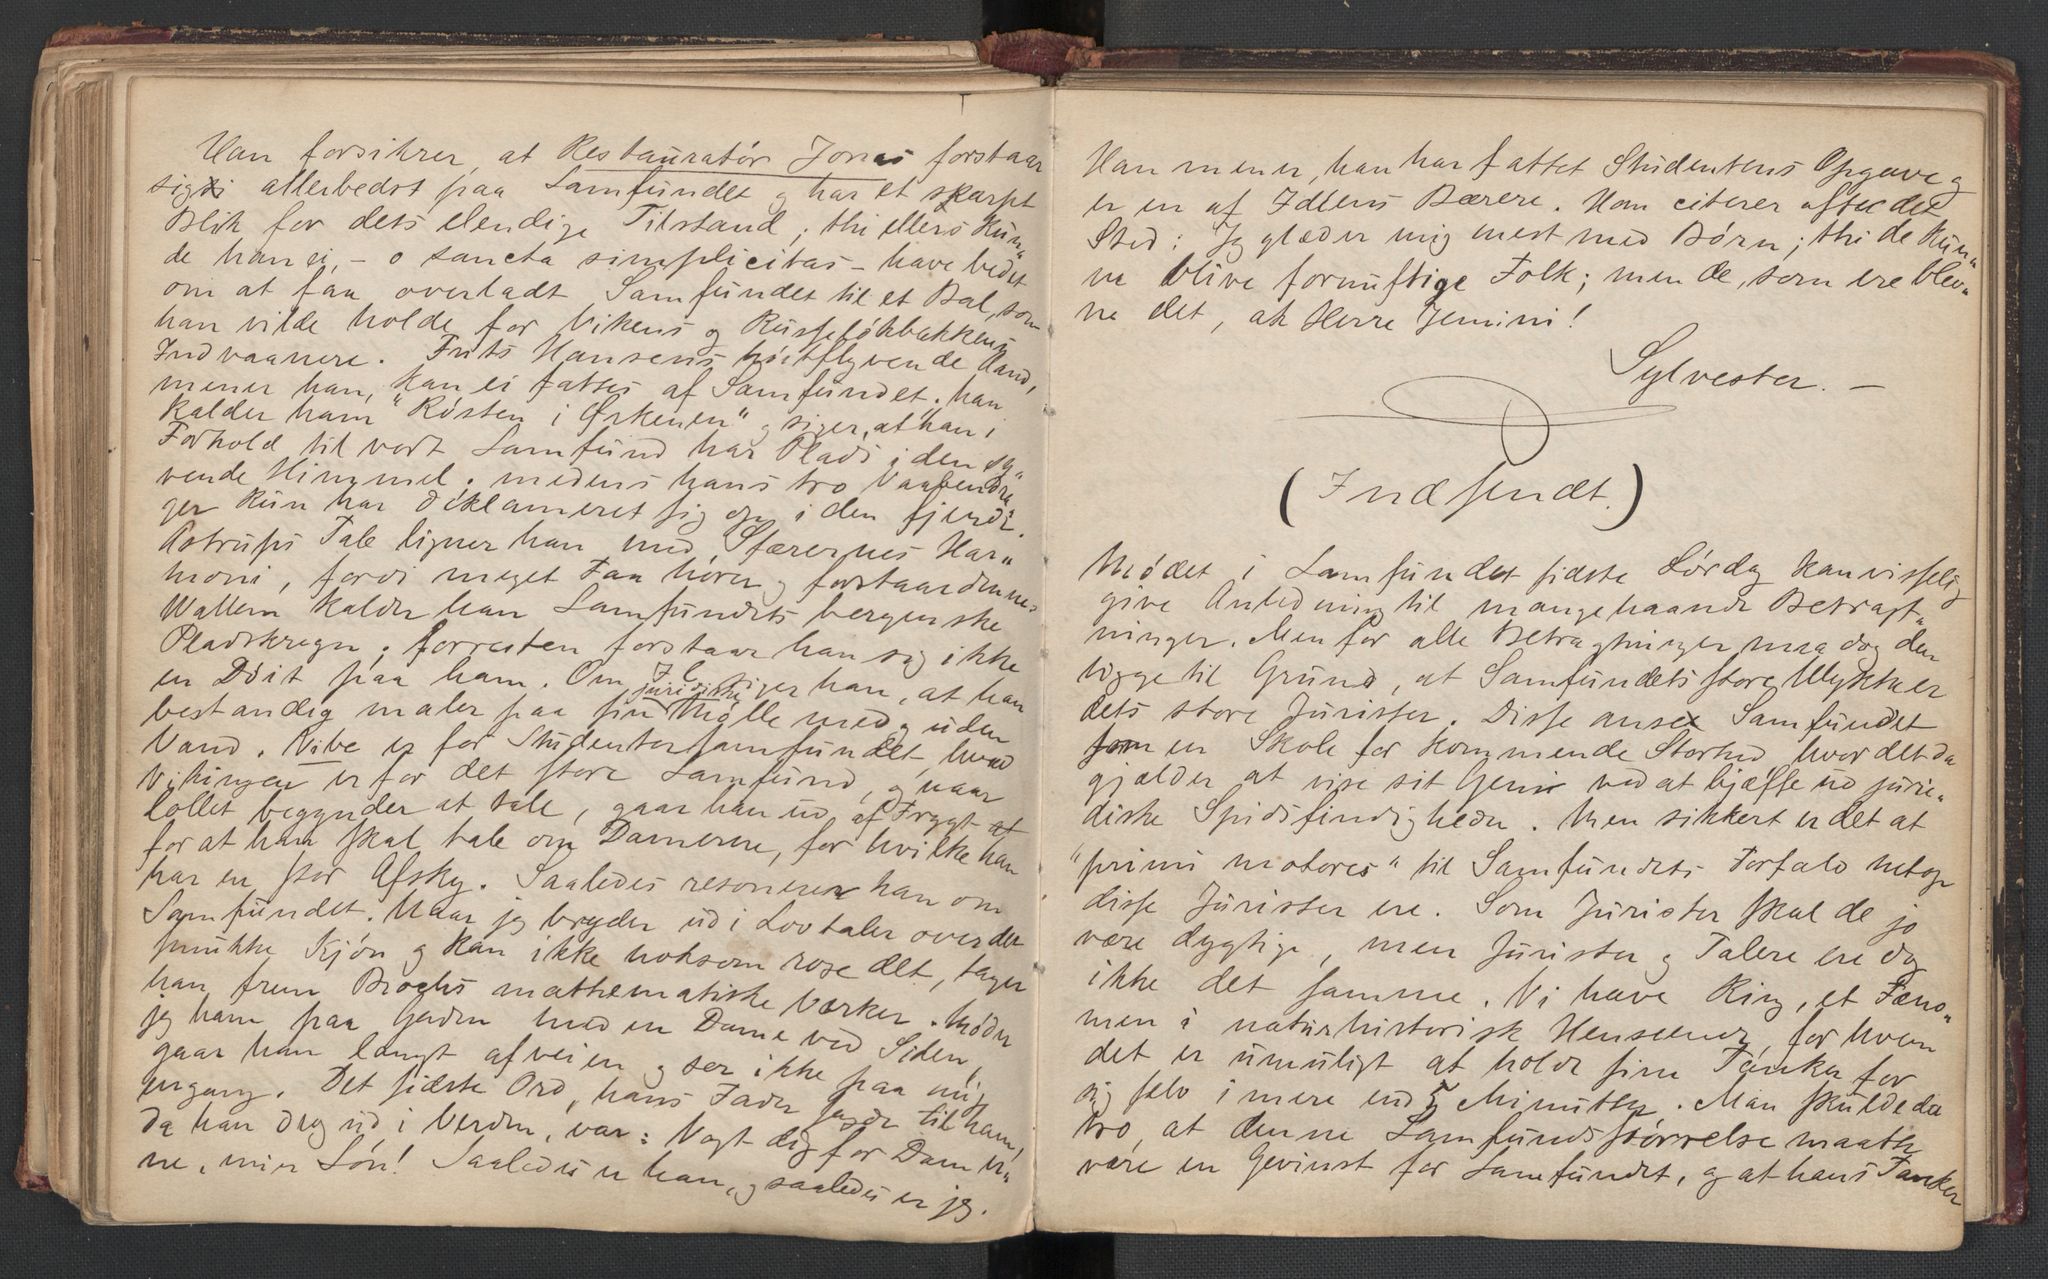 Han forsikrer, at Restauratør Jonas forstaar
sig allerbedst paa Samfundet og har et skarpt
Blik for dets elendige Tilstand; thi ellers kun„
de han ei, – o sancta simplicitas – have bedet
om at faa overladt Samfundet til et Bal, som
han vilde holde for Vikens og Russeløkbakkens
Indvaanere. Frits Hansens høitflyvende Aand,
mener han, kan ei fattes af Samfundet. han
kalder ham "Røsten i Ørkenen" og siger, at han i
Forhold til vort Samfund har Plads i den sy„
vende Himmel. medens hans tro Vaabendra„
ger kun har deklameret sig op i den fjerde.
Astrups Tale ligner han med Sfærernes Har„
moni, fordi meget Faa hører og forstaar denne.
Wallem kalder han Samfundets bergenske
Pladskregn, forresten forstaar han sig ikke
en Døit paa ham. Om siger han, at han
bestandig maler paa sin juridiske Mølle med og uden
Vand. Vibe er for Studentersamfundet, hvad
Vikingen er for det store Samfund, og naar
Collet begynder at tale, gaar han ud af Frygt
for at han skal tale om Damerne, for hvilke han
har en stor Afsky. Saaledes resonerer han om
Samfundet. Naar jeg bryder ud i Lovtaler over det
smukke Kjøn og kan ikke noksom rose det, tager
han frem Brochs mathematiske Værker. Møder
jeg ham paa Gaden med en Dame ved Siden,
gaar han langt af veien og ser ikke paa mig
engang. Det sidste Ord, hans Fader sagde til ham,
da han drog ud i Verden, var: Vogt dig for Damer„
ne, min Søn! Saaledes er han, og saaledes er jeg.
Han mener, han har fattet Studentens Opgave og
er en af Ideens Bærere. Han citerer ofte det
Sted: Jeg glæder mig mest med Børn; thi de kun„
ne blive fornuftige Folk; men de, som ere blev„
ne det, ak Herre Jemini!
Sylvester. –
(Indsendt.)
Mødet i Samfundet sidste Lørdag kan visselig
give Anledning til mangehaande Betragt„
ninger. Men for alle Betragtninger maa dog den
ligge til Grund, at Samfundets store Ulykke er
dets store Jurister. Disse anse Samfundet
som en Skole for kommende Storhed, hvor det da
gjælder at vise sit Geni ved at bjæffe ud juri„
diske Spidsfindigheder. Men sikkert er det at
"primi motores" til Samfundets Forfald netop
disse Jurister ere. Som Jurister skal de jo
være dygtige, men Jurister og Talere ere dog
ikke det samme. Vi have Ring, et Fæno„
men i naturhistorisk Henseende, for hvem
det er umuligt at holde sine Tanker for
sig selv i mere end 5 Minutter. Man skulde da
tro, at denne Samfundsstørrelse maatte
være en Gevinst for Samfundet, og at hans Tanker